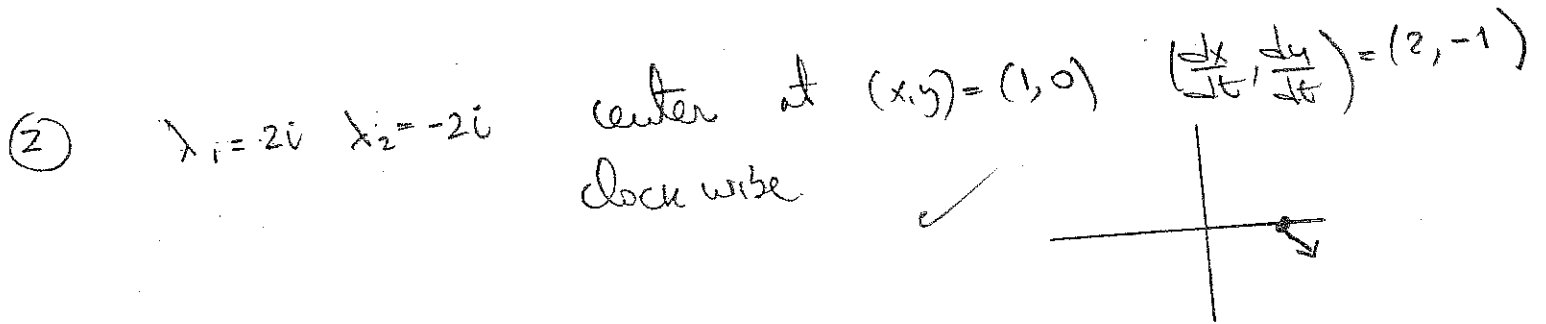 ② λ₁ = 2i λ₂ = -2i center at (x,y) = (1,0) (dx/dt, dy/dt) = (2, -1)
clock wise ✓